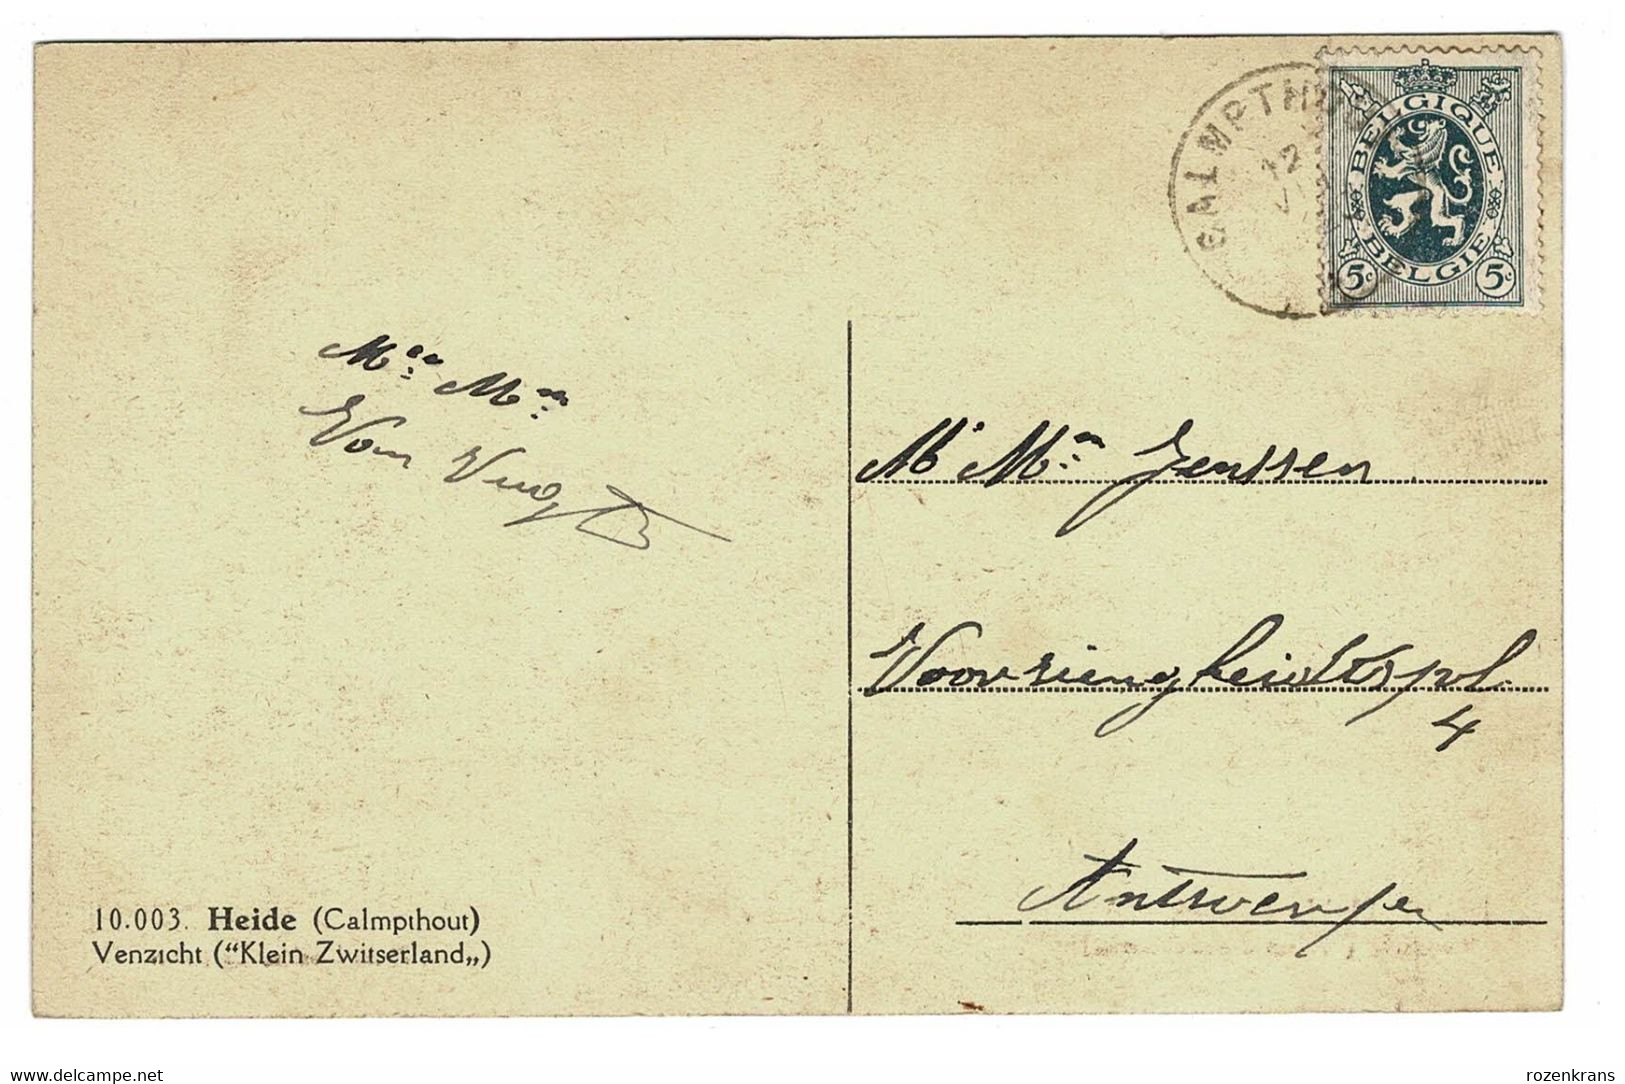 CALMPTHO
12
BELGIQUE
BELGIE
5c 5c
Mr en Mme
Van
Mr Mme Jenssen
Voorzienigheidtspl.
4
Antwerpen
10.003. Heide (Calmpthout)
Venzicht (“Klein Zwitserland„)
www.delcampe.net
rozenkrans